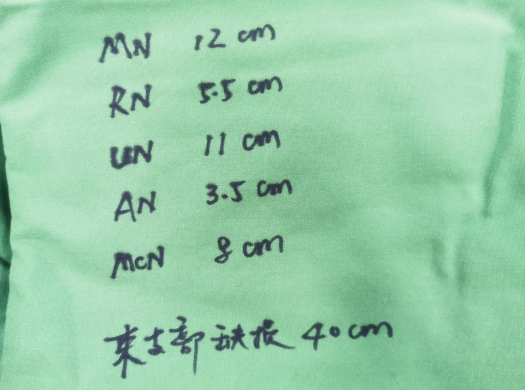 MN 12 cm
RN 5.5 cm
UN 11 cm
AN 3.5 cm
McN 8 cm
束支部缺损 40cm